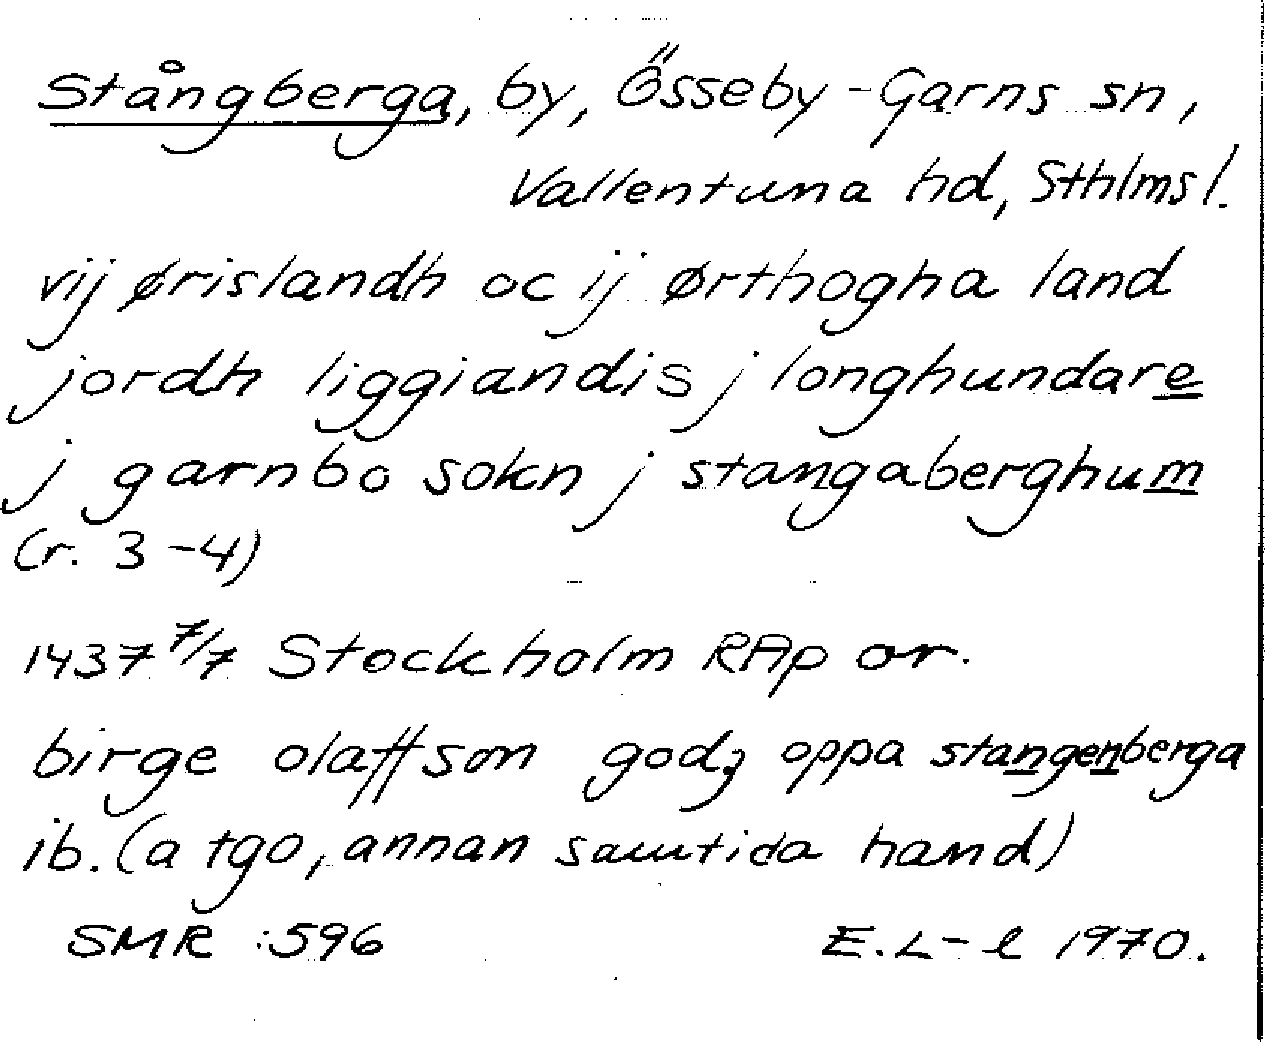 Stångberga, by, Össeby-Garns sn,
Vallentuna hd, Sthlms l.
vij ørislandh oc ij ørthogha land
jordh liggiandis j longhundare
j garnbo sokn j stangaberghum
(r. 3-4)
1437 7/7 Stockholm RAp or.
birge olaffson godz oppa stangenberga
ib. (a tgo, annan samtida hand)
SMR :596 E.L-l 1970.